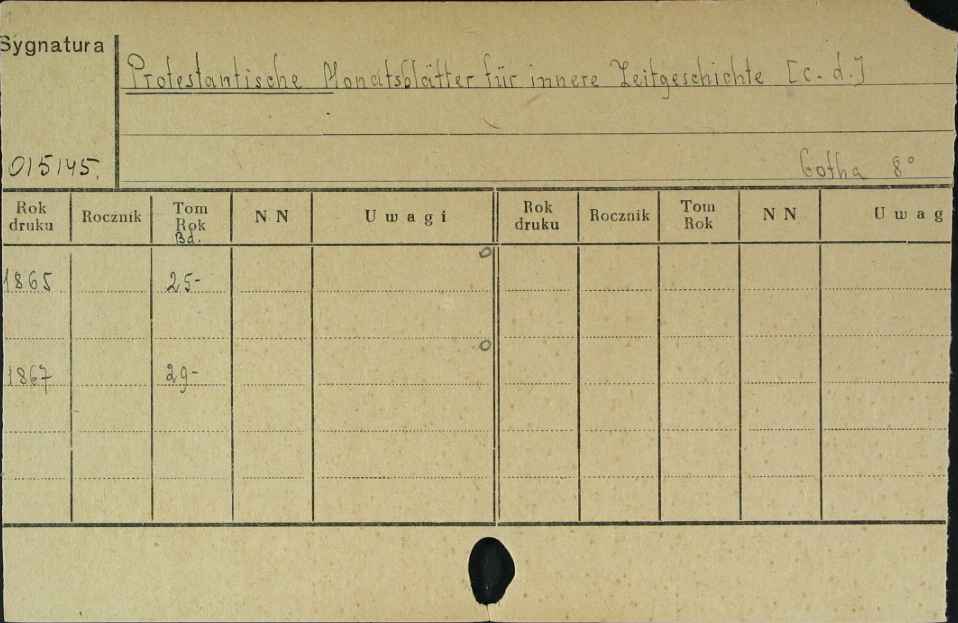 Sygnatura
Protestantische Monatsblätter für innere Zeitgeschichte [c. d.]
015145.
Gotha 8°
Rok druku Rocznik Tom Rok Bd. N N Uwagi Rok druku Rocznik Tom Rok N N Uwag
1865 25-
1867 29-